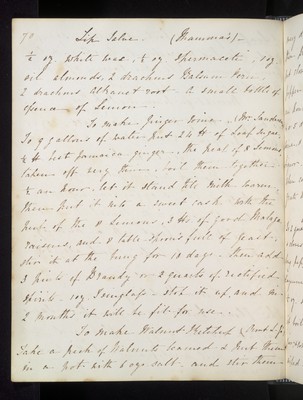 70 Lip Salve. (Mamma's)
½ oz. white wax, ½ oz Spermaceti, 1 oz
oil almonds, 2 drachms Balsam Peru,
2 drachms alkanet root a small bottle of
essence of Lemon
To make Ginger Wine.
To 9 gallons of water put 24 lb of Loaf sugar,
½ lb best Jamaica ginger, the peel of 8 Lemons
taken off very thin, boil them together
½ an hour, let it stand till milk warm,
then put it into a sweet cask with the
juice of the 8 Lemons, 3 lbs of good Malaga
raisins, and 8 table spoons full of yeast,
stir it at the bung for 10 days. Then add
3 pints of Brandy or 2 quarts of rectified
Spirits, 1 oz Isinglass - stop it up, and in
2 months it will be fit for use.
To make Walnut Ketchup
Take a peck of Walnuts & put them
in a pot with 6 ozs salt and stir them